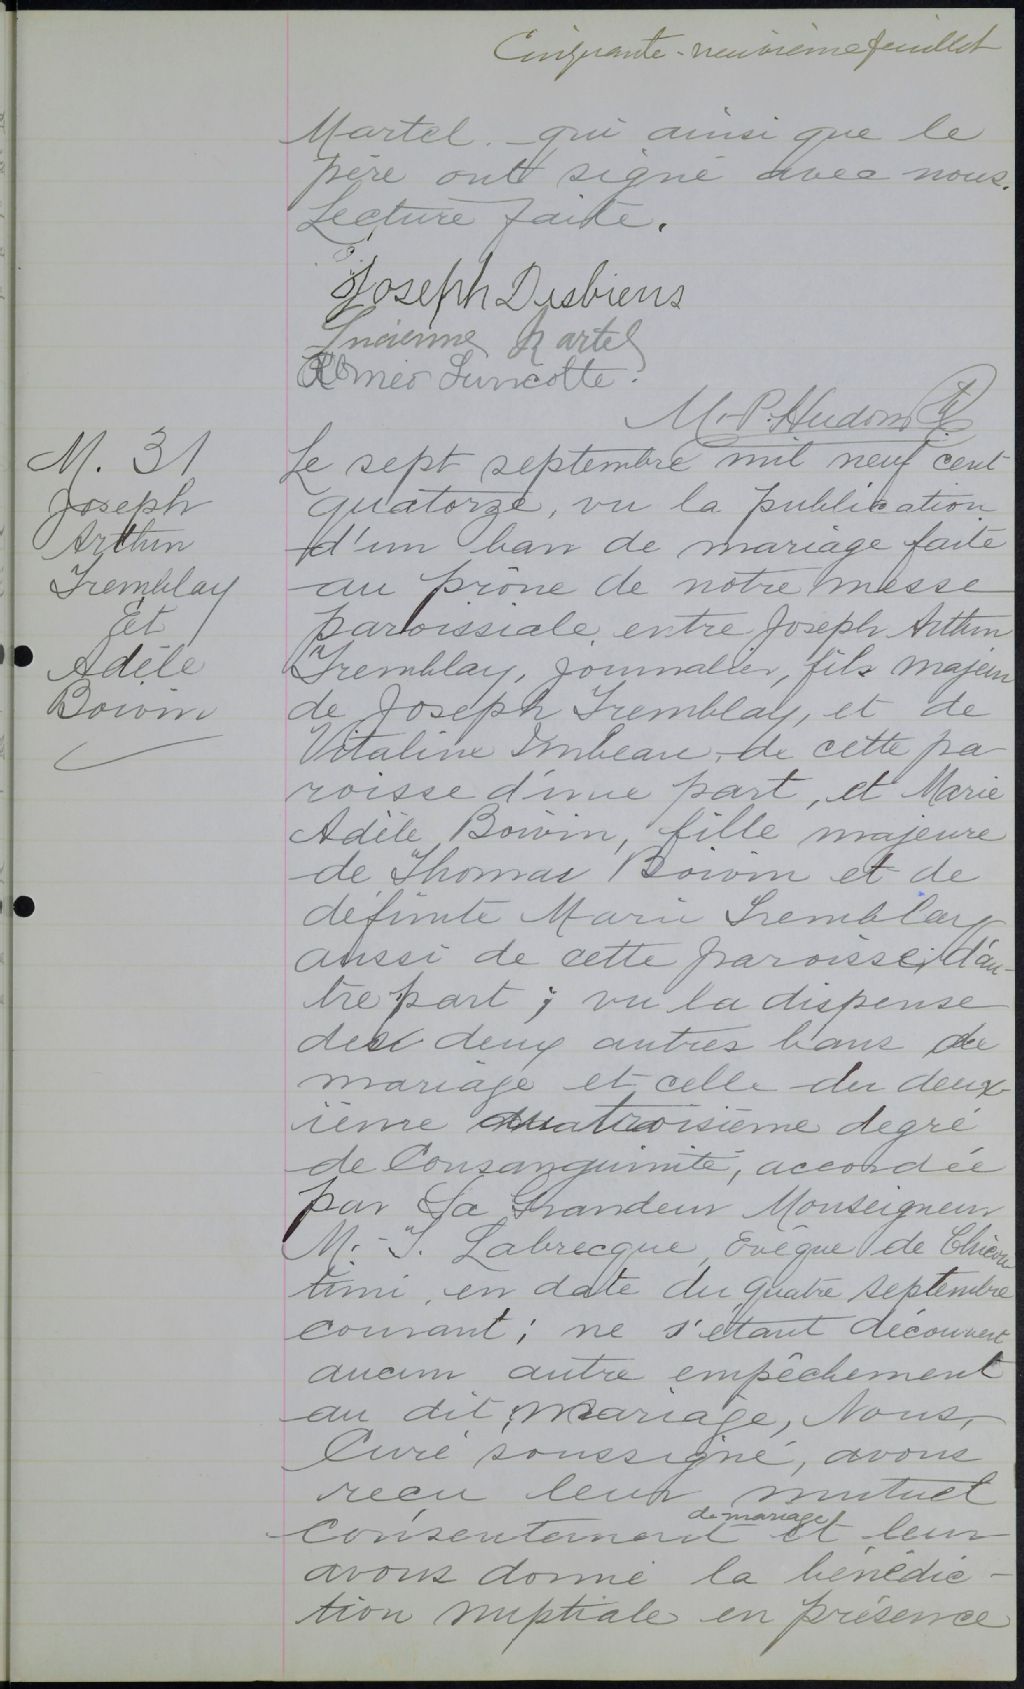 Cinquante-neuvième feuillet
Martel qui ainsi que le
père ont signé avec nous.
Lecture faite.
Joseph Desbiens
Lucienne Martel
Roméo Turcotte.
M.-P. Hudon
M. 31
Joseph
Arthur
Tremblay
Et
Adèle
Boivin
Le sept septembre mil neuf cent
quatorze, vu la publication
d'un ban de mariage faite
au prône de notre messe
paroissiale entre Joseph Arthur
Tremblay, journalier, fils majeur
de Joseph Tremblay, et de
Vitaline Imbeau de cette pa-
roisse d'une part, et Marie
Adèle Boivin, fille majeure
de Thomas Boivin et de
défunte Marie Tremblay
aussi de cette paroisse, d'au-
tre part; vu la dispense
des deux autres bans de
mariage et celle du deux-
ième au troisième degré
de Consanguinité, accordée
par Sa Grandeur Monseigneur
M.-T. Labrecque, Evêque de Chicou
timi, en date du quatre septembre
courant; ne s'étant découvert
aucun autre empêchement
au dit mariage, Nous,
Curé soussigné, avons
reçu leur mutuel
consentement de mariage et leur
avons donné la bénédic-
tion nuptiale en présence